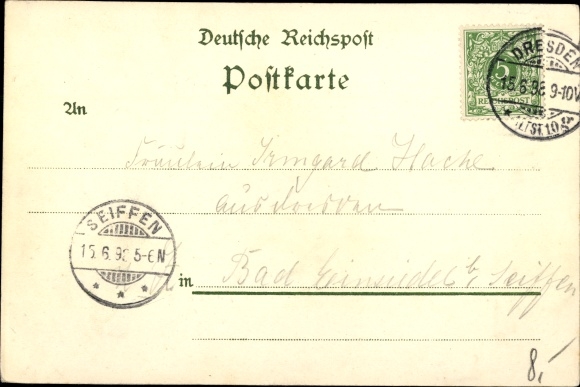 Deutsche Reichspost
Postkarte
5
REICHSPOST
DRESDEN
15.6.98 9-10V
ALTST. 10
An
Fräulein Irmgard Hache
aus Dresden
SEIFFEN
15.6.98 5-6N
in Bad Einsiedel b/ Seiffen
8,-